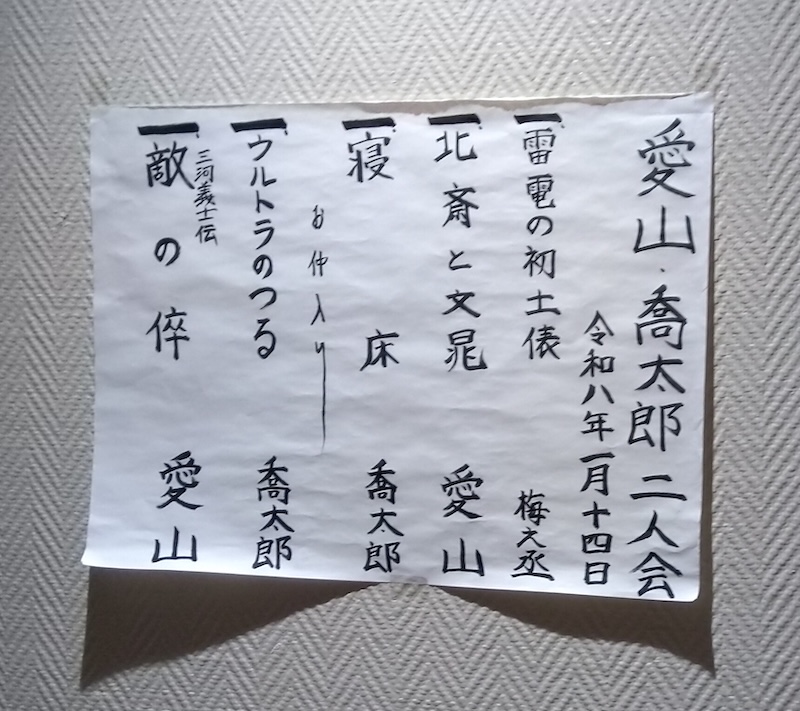 愛山・喬太郎 二人会
令和八年一月十四日
一 雷電の初土俵 梅之丞
一 北斎と文晁 愛山
一 寝床 喬太郎
お仲入り
一 ウルトラのつる 喬太郎
三河義士伝
一 敵の倅 愛山